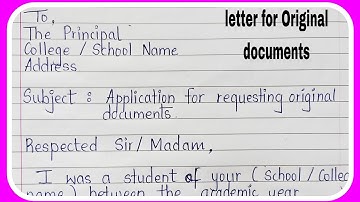 letter for Original
documents
To,
The Principal
College / School Name
Address
Subject : Application for requesting original
documents.
Respected Sir / Madam,
I was a student of your ( School / Colleg
name ) between the academic year